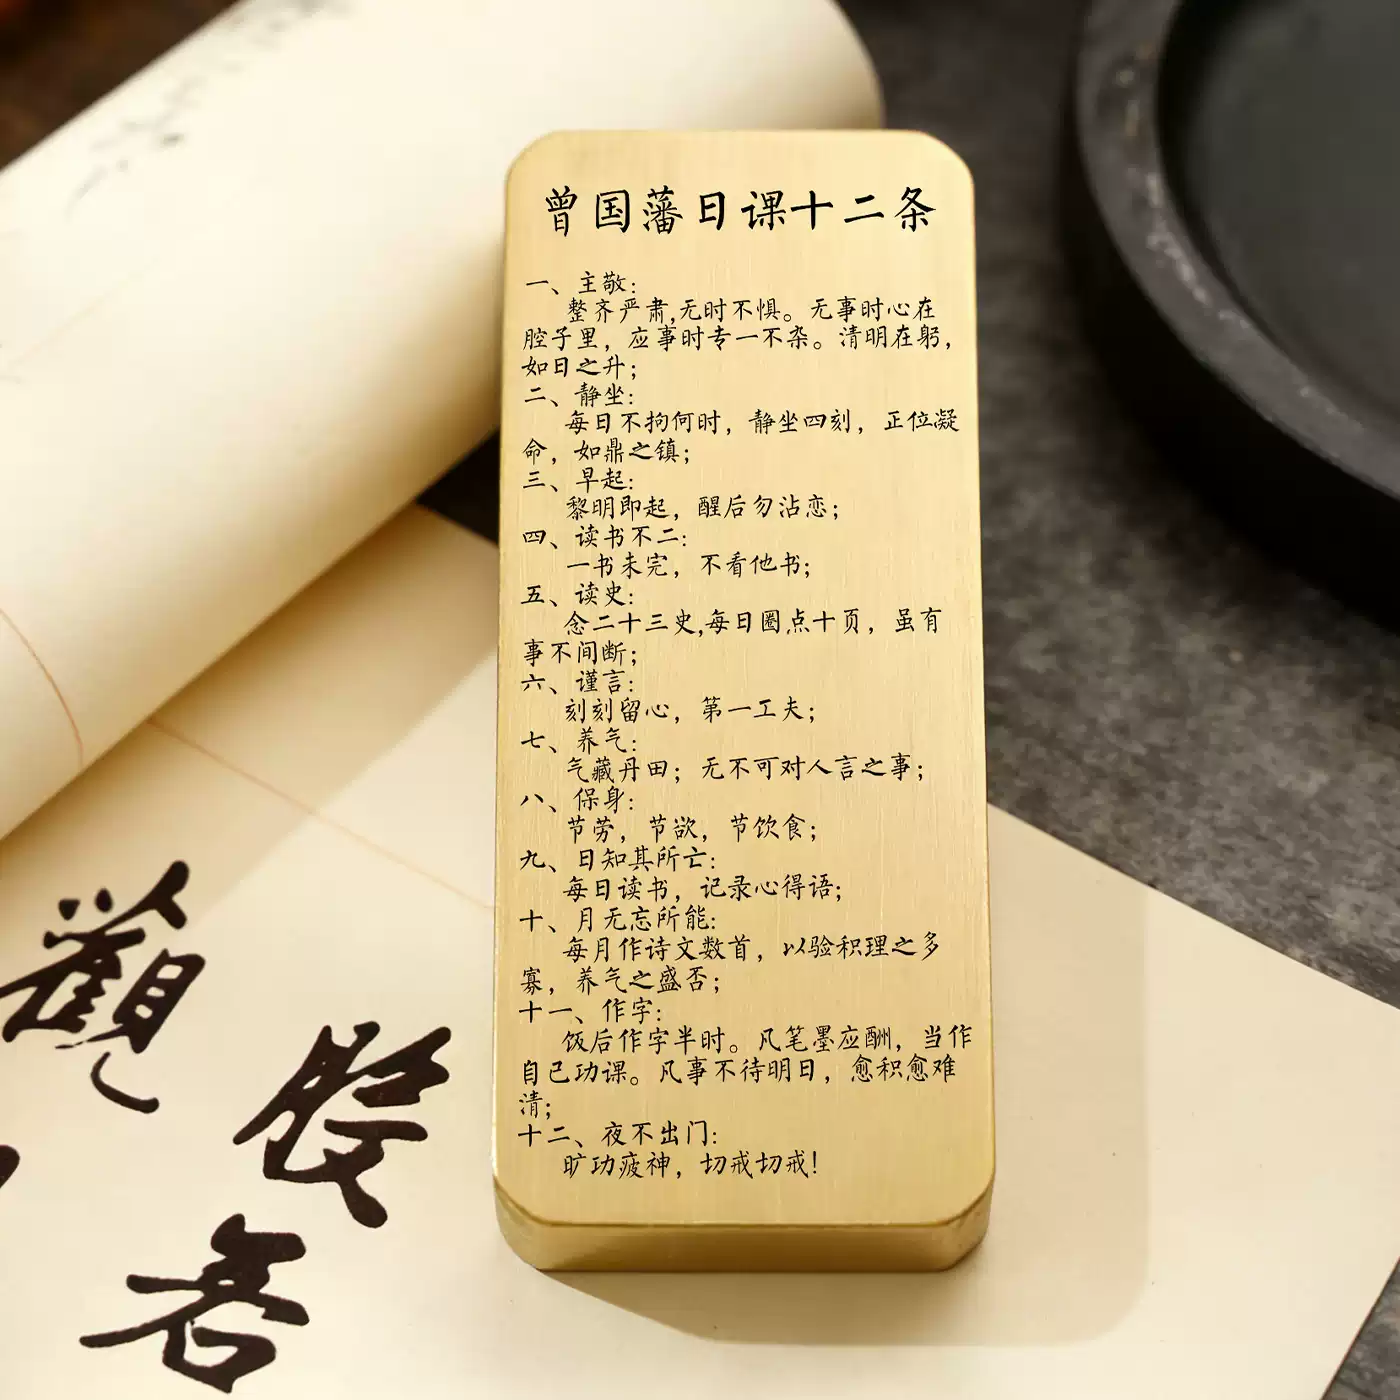 曾国藩日课十二条
一、主敬:
整齐严肃,无时不惧。无事时心在
腔子里，应事时专一不杂。清明在躬，
如日之升；
二、静坐:
每日不拘何时，静坐四刻，正位凝
命，如鼎之镇；
三、早起:
黎明即起，醒后勿沾恋；
四、读书不二:
一书未完，不看他书；
五、读史:
念二十三史,每日圈点十页，虽有
事不间断；
六、谨言:
刻刻留心，第一工夫；
七、养气:
气藏丹田；无不可对人言之事；
八、保身:
节劳，节欲，节饮食；
九、日知其所亡:
每日读书，记录心得语；
十、月无忘所能:
每月作诗文数首，以验积理之多
寡，养气之盛否；
十一、作字:
饭后作字半时。凡笔墨应酬，当作
自己功课。凡事不待明日，愈积愈难
清；
十二、夜不出门:
旷功疲神，切戒切戒！
觀